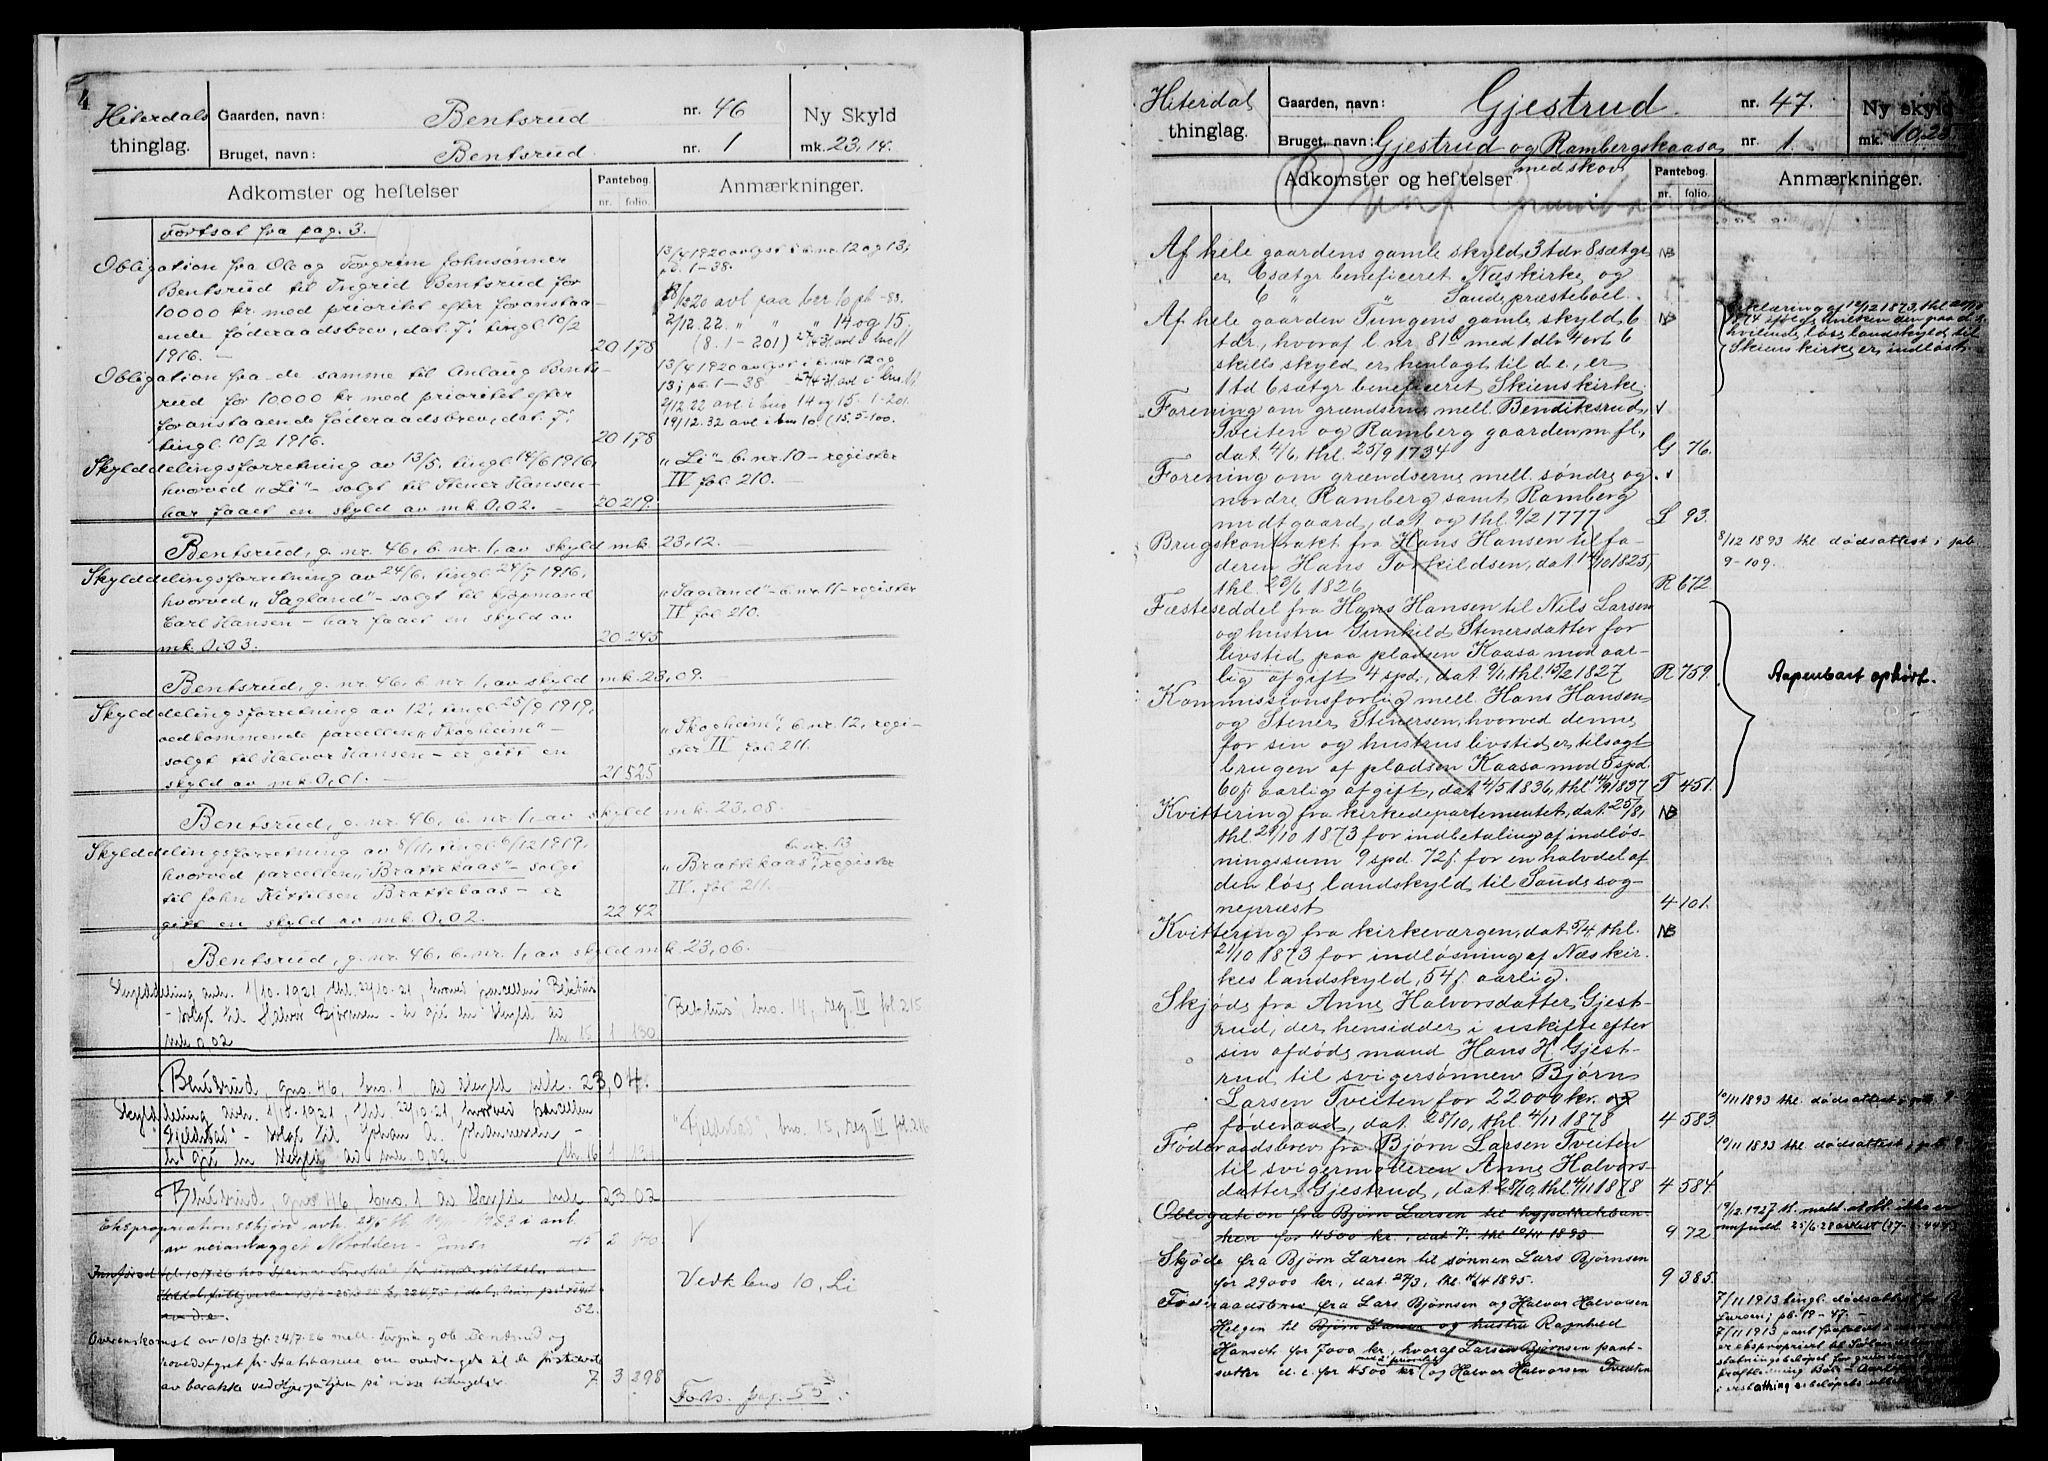 4
Hiterdals
thinglag.
Gaarden, navn: Bentsrud nr. 46
Bruget, navn: Bentsrud nr. 1
Ny Skyld
mk. 23,14.
Adkomster og heftelser
Pantebog.
nr. folio.
Anmærkninger.
Fortsat fra pag. 3.
Obligation fra Ole og Torgrim Johnsønner
Bentsrud til Ingrid Bentsrud for
10000 kr. med prioritet efter foranstaa-
ende føderaadsbrev, dat. 7, tingl. 10/2
1916. — 20 178
13/4 1920 avlyst i b.nr. 12 og 13;
pb. 1-38.
2/12.22. " " " 14 og 15.
Obligation fra de samme til Anlaug Bents-
rud for 10000 kr med prioritet efter
foranstaaende føderaadsbrev, dat. 7,
tingl. 10/2 1916. 20 178
13/4 1920 avlyst i b.nr. 12 og
13; pb. 1-38
2/12.22 avl i bno 14 og 15. 1-201.
19/12.32 avl i bno 10 (15.5-100.
Skylddelingsforretning av 13/5, tingl. 14/6 1916,
hvorved "Li" - solgt til Stener Hansen -
har faaet en skyld av mk. 0,02. — 20 219.
"Li" - b.nr. 10 - register
IV fol. 210. —
Bentsrud, g. nr. 46, b. nr. 1, av skyld mk. 23,12. —
Skylddelingsforretning av 24/6, tingl. 24/7 1916,
hvorved "Sagland" - solgt til kjøpmand
Carl Hansen - har faaet en skyld av
mk. 0,03. 20 245
"Sagland" - b.nr. 11 - register
IV fol. 210.
Bentsrud, g. nr. 46, b. nr. 1, av skyld mk. 23,09. —
Skylddelingsforretning av 12, tingl. 25/9 1919,
vedkommende parcellen "Skogheim" -
solgt til Halvor Hansen - er gitt en
skyld av mk. 0,01. — 21 525
"Skogheim", b. nr. 12, regi-
ster IV fol. 211.
Bentsrud, g. nr. 46, b. nr. 1, av skyld mk. 23,08. —
Skylddelingsforretning av 8/11, tingl. 6/12 1919,
hvorved parcellen "Brattekaas" - solgt
til John Kittelsen Brattekaas - er
gitt en skyld av mk. 0,02. 22 42
b.nr. 13
"Brattekaas", register
IV. fol. 211.
Bentsrud, g. nr. 46, b. nr. 1, av skyld mk. 23,06.
Skylddeling avh. 1/10.1921 thl. 22/10.21, hvorved parcellen
- solgt til Halvor Bjørnsen - er gitt en skyld av
mk 0,02 1 130
bno. 14, reg. IV fol 215
Bentsrud, gno. 46, bno. 1, av skyld mk. 23,04.
Skylddeling avh. 1/10.1921, thl. 22/10.21, hvorved parcellen
"Fjeldstad" - solgt til Johan A. Johannessen -
er gitt en skyld av mk. 0,02. 1 131
"Fjeldstad", bno. 15, reg IV fol 216
Bentsrud, gno 46, bno. 1 av skyld mk. 23,02
Ekspropriationsskjøn avh. 1923 i anl.
av veianlægget Notodden - 2
V
Vedk bno 10, Li
52.
Overenskomst av 10/3 tgl. 24/7.26 mell. Torgrim og Ole Bentsrud og
hovedstyret for Statsbanene om overdragelse til de første
av barakke ved 7 3 298
Forts. pag. 55

Hiterdal
thinglag.
Gaarden, navn: Gjestrud nr. 47.
Bruget, navn: Gjestrud og Rambergskaasa nr. 1.
med skov
Ny skyld
mk. 10,23.
Adkomster og heftelser
Pantebog.
nr. folio.
Anmærkninger.
Af hele gaardens gamle skyld, 3 tdr 8 sætgr
er 6 sætgr beneficeret Næs kirke og
6 " " Sande præsteboel.
NB
Af hele gaarden Tungens gamle skyld, 6
tdr., hvoraf l. nr. 81 med 1 dlr 4 ort 6
skills skyld er henlagt til d. e., er
1 td 6 sætgr beneficeret Skiens kirke.
NB
Erklæring af 12/12 1873, thl.
hvilende løse landskyld til
Skiens kirke er indløst.
Forening om grændserne mell. Bendiksrud,
Tveiten og Ramberg gaarden, m. fl.,
dat. 4/6, thl. 25/9 1734 G 76.
Forening om grændserne mell. søndre og
nordre Ramberg samt Ramberg
midtgaard, dat og thl. 9/2 1777 L 93.
Brugskontrakt fra Hans Hansen til fa-
deren Hans Torkildsen, dat. 14/10 1825,
thl. 22/6 1826 R 672
8/12 1893 thl. dødsattest i pb.
9-109.
Fæsteseddel fra Hans Hansen til Nils Larsen
og hustru Gunhild Stenersdatter for
livstid paa pladsen Kaasa mod aar-
lig afgift 4 spd., dat. 9/1, thl. 15/2 1827 R 759.
Aapenbart ophørt.
Kommissionsforlig mell. Hans Hansen
og Stener Stenersen, hvorved denne
for sin og hustrus livstid er tilsagt
brugen af pladsen Kaasa mod 5 spd.
60 s. aarlig afgift, dat. 14/5 1836, thl. 14/9 1837 T 451.
Kvittering fra kirkedepartementet, dat. 25/8,
thl. 21/10 1873 for indbetaling af indløs-
ningssum 9 spd. 72 s. for en halvdel af
den løse landskyld til Sande sog-
nepræst 4 101.
NB
Kvittering fra kirkeværgen, dat. 5/4, thl.
21/10 1873 for indløsning af Næs kir-
kes landskyld, 54 s. aarlig.
NB
Skjøde fra Anne Halvorsdatter Gjest-
rud, der hensidder i uskifte efter
sin afdøde mand Hans H. Gjest-
rud, til svigersønnen Bjørn
Larsen Tveiten for 22000 kr. og
føderaad, dat. 28/10, thl. 4/11 1878 4 583.
10/11 1893 thl. dødsattest, pb. 9
Føderaadsbrev fra Bjørn Larsen Tveiten
til svigermoderen Anne Halvors-
datter Gjestrud, dat. 28/10, thl. 4/11 1878 4 584.
10/11 1893 thl. dødsattest, pb. 9
Obligation fra Bjørn Larsen til hypothekban-
ken for 4500 kr., dat. 7, thl. 10/11 1893 9 72
Skjøde fra Bjørn Larsen til sønnen Lars Bjørnsen
for 29000 kr., dat. 27/3, thl. 4/4 1895. 9 385.
Føderaadsbrev fra Lars Bjørnsen og Halvor Halvorsen
Helgen til Bjørn Larsen og hustru Ragnhild
Hansdt for 7000 kr., hvoraf Lars Bjørnsen pant-
sætter d. e. for 4500 kr. med 2 prioritet og Halvor Halvorsen Tveiten
7/11 1913 tingl. dødsattest for
Larsen; pb. 19 - 47.